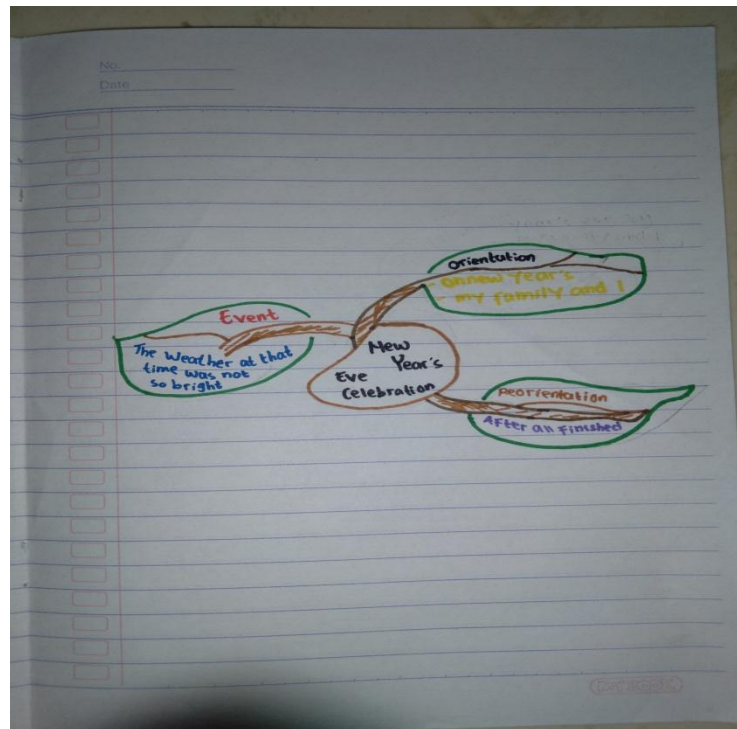 No.
Date
Orientation
- on new Year's
- my family and I
Event
The Weather at that
time was not
so bright
New
Year's
Eve
Celebration
Reorientation
After all Finished